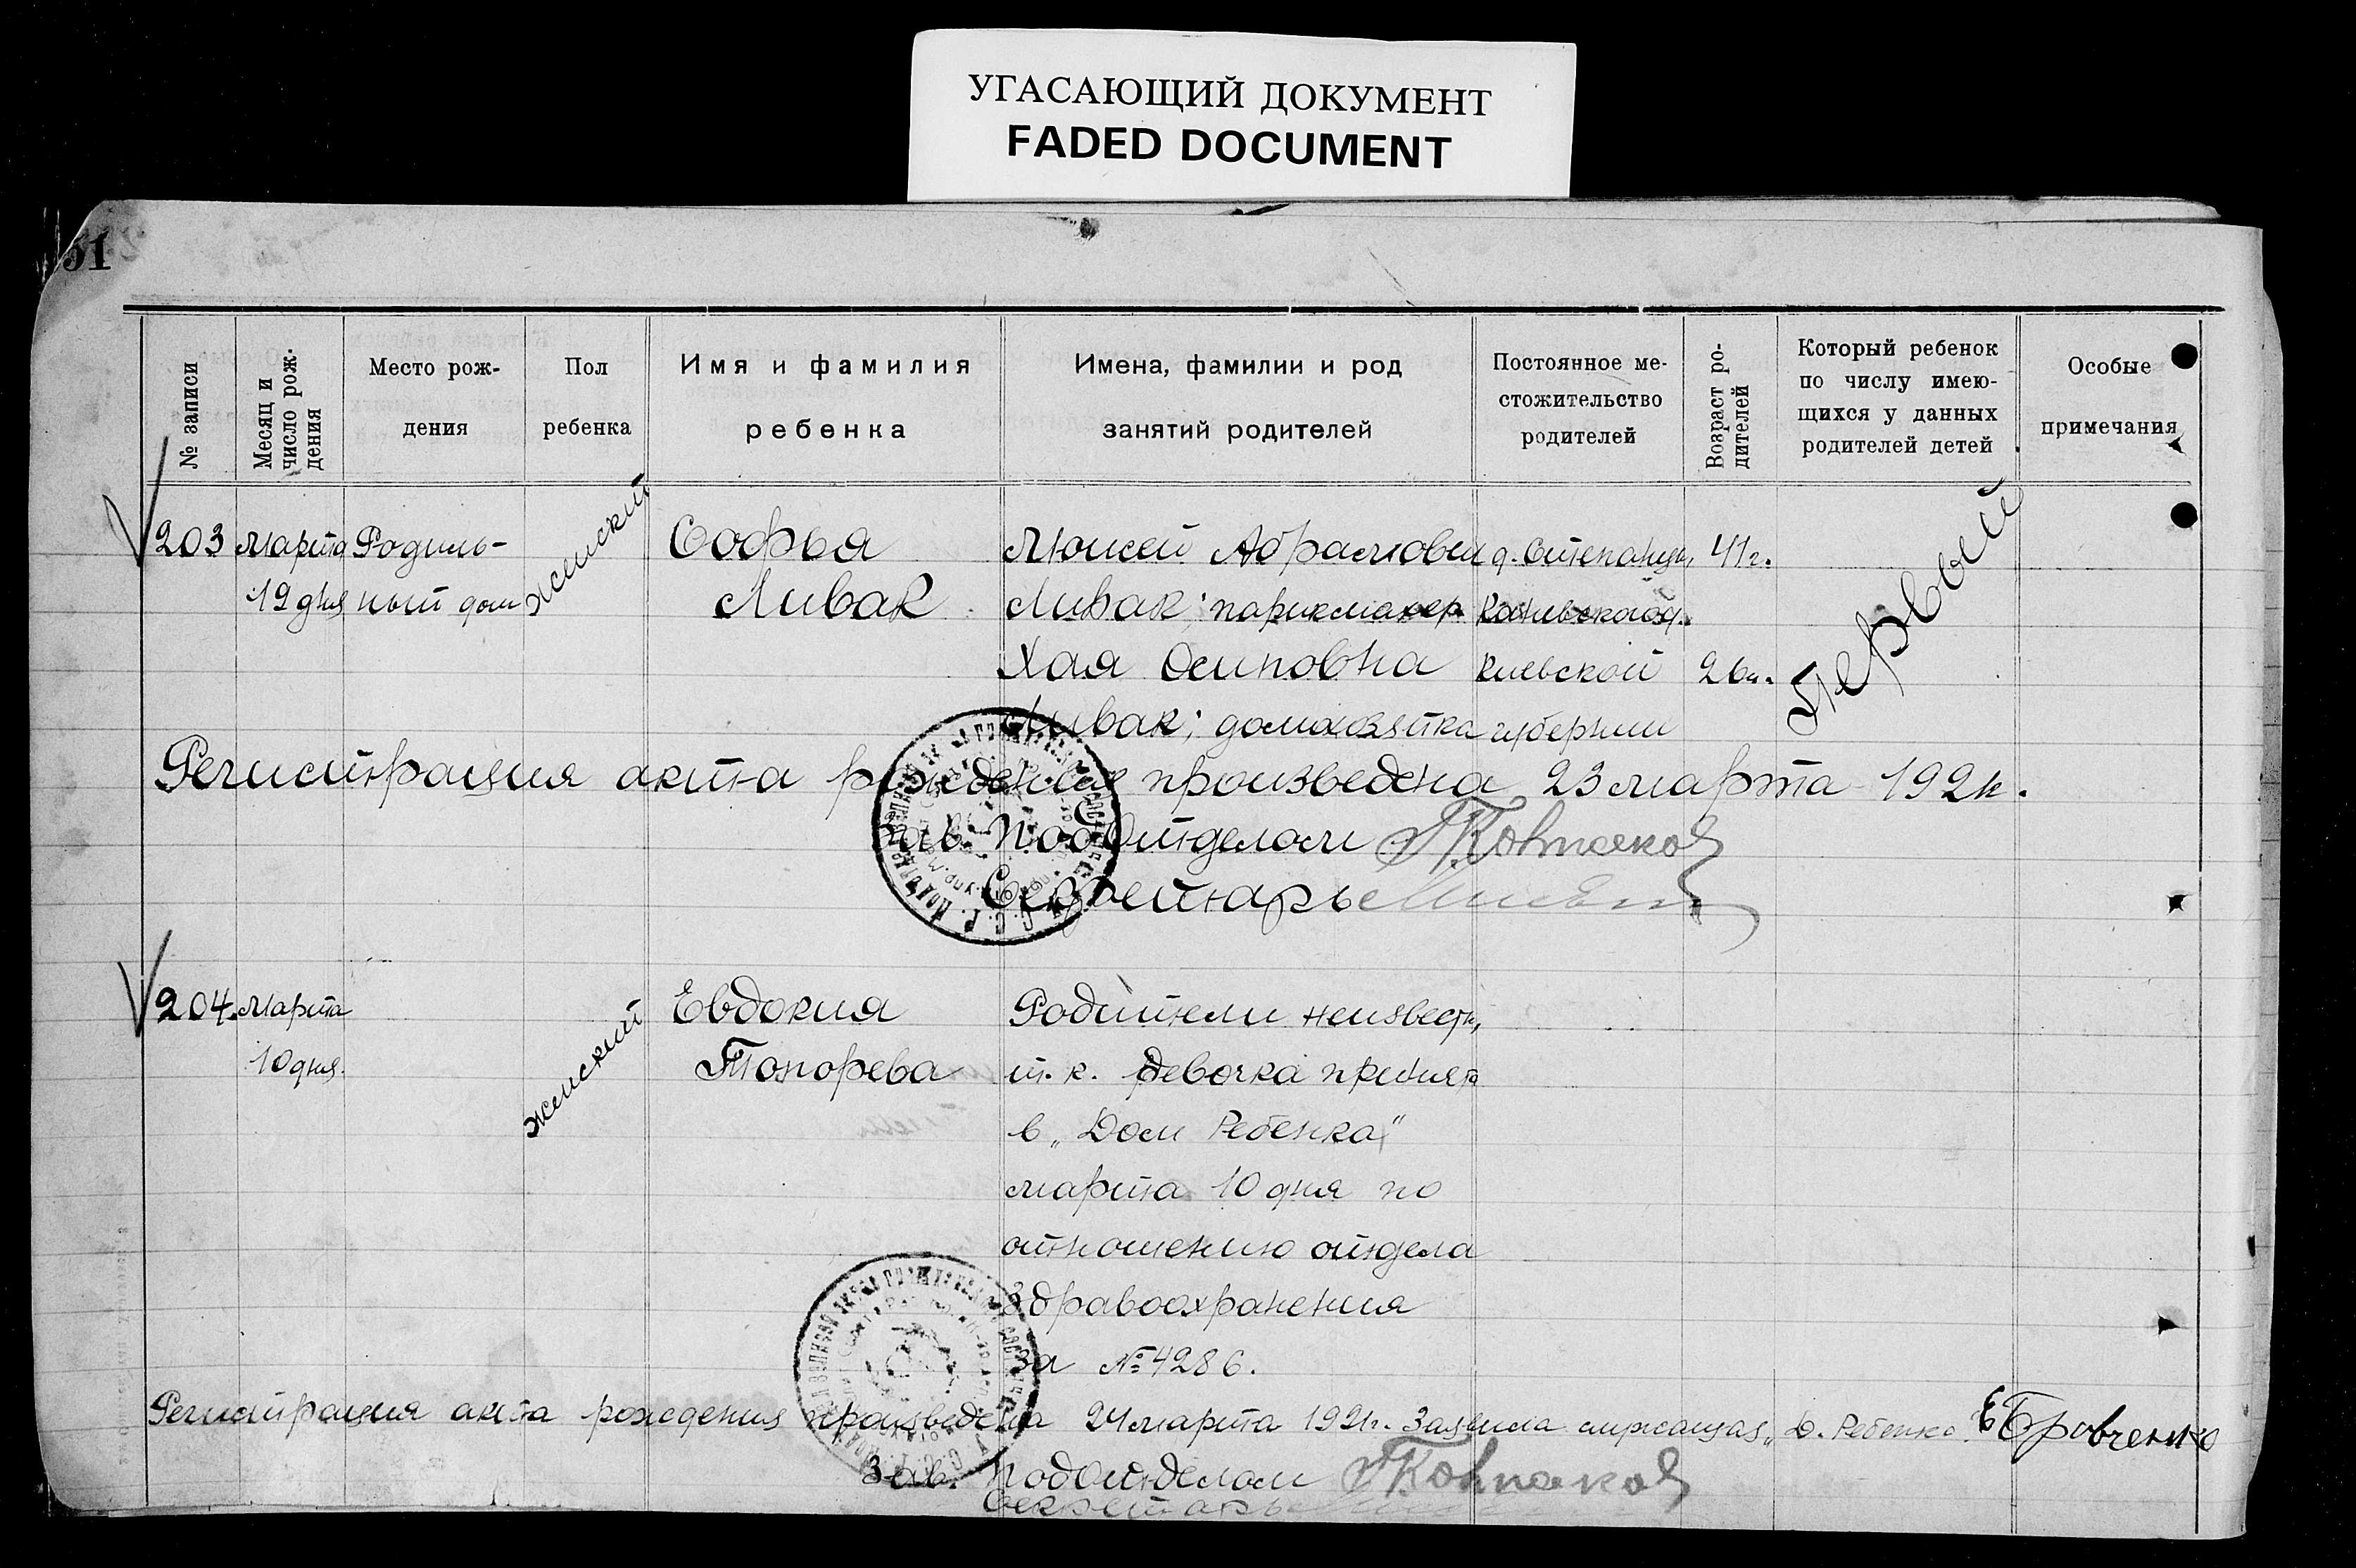 УГАСАЮЩИЙ ДОКУМЕНТ
FADED DOCUMENT
51
№ записи
Месяц и
число рож-
дения
Место рож-
дения
Пол
ребенка
Имя и фамилия
ребенка
Имена, фамилии и род
занятий родителей
Постоянное ме-
стожительство
родителей
Возраст ро-
дителей
Который ребенок
по числу имею-
щихся у данных
родителей детей
Особые
примечания
203 марта Родиль- женский Софья Абрамович д. Степанцы, 41 г. первый
19 дня ный дом Ливак Ливак; парикмахер Каневского у.
Хая Осиповна Киевской 26 л.
Ливак; домохозяйка губернии
Регистрация акта рождения произведена 23 марта 1921 г.
Зав. Подотделом
Секретарь
204. марта женский Евдокия Родители неизвестн,
10 дня. Топорева т. к. девочка принята
в „Дом Ребенка"
марта 10 дня по
отношению отдела
Здравоохранения
за № 4286.
Регистрация акта рождения произведена 24 марта 1921 г. Заявила служащая „Д. Ребенка" Е Бровченко
Зав. Подотделом
Секретарь